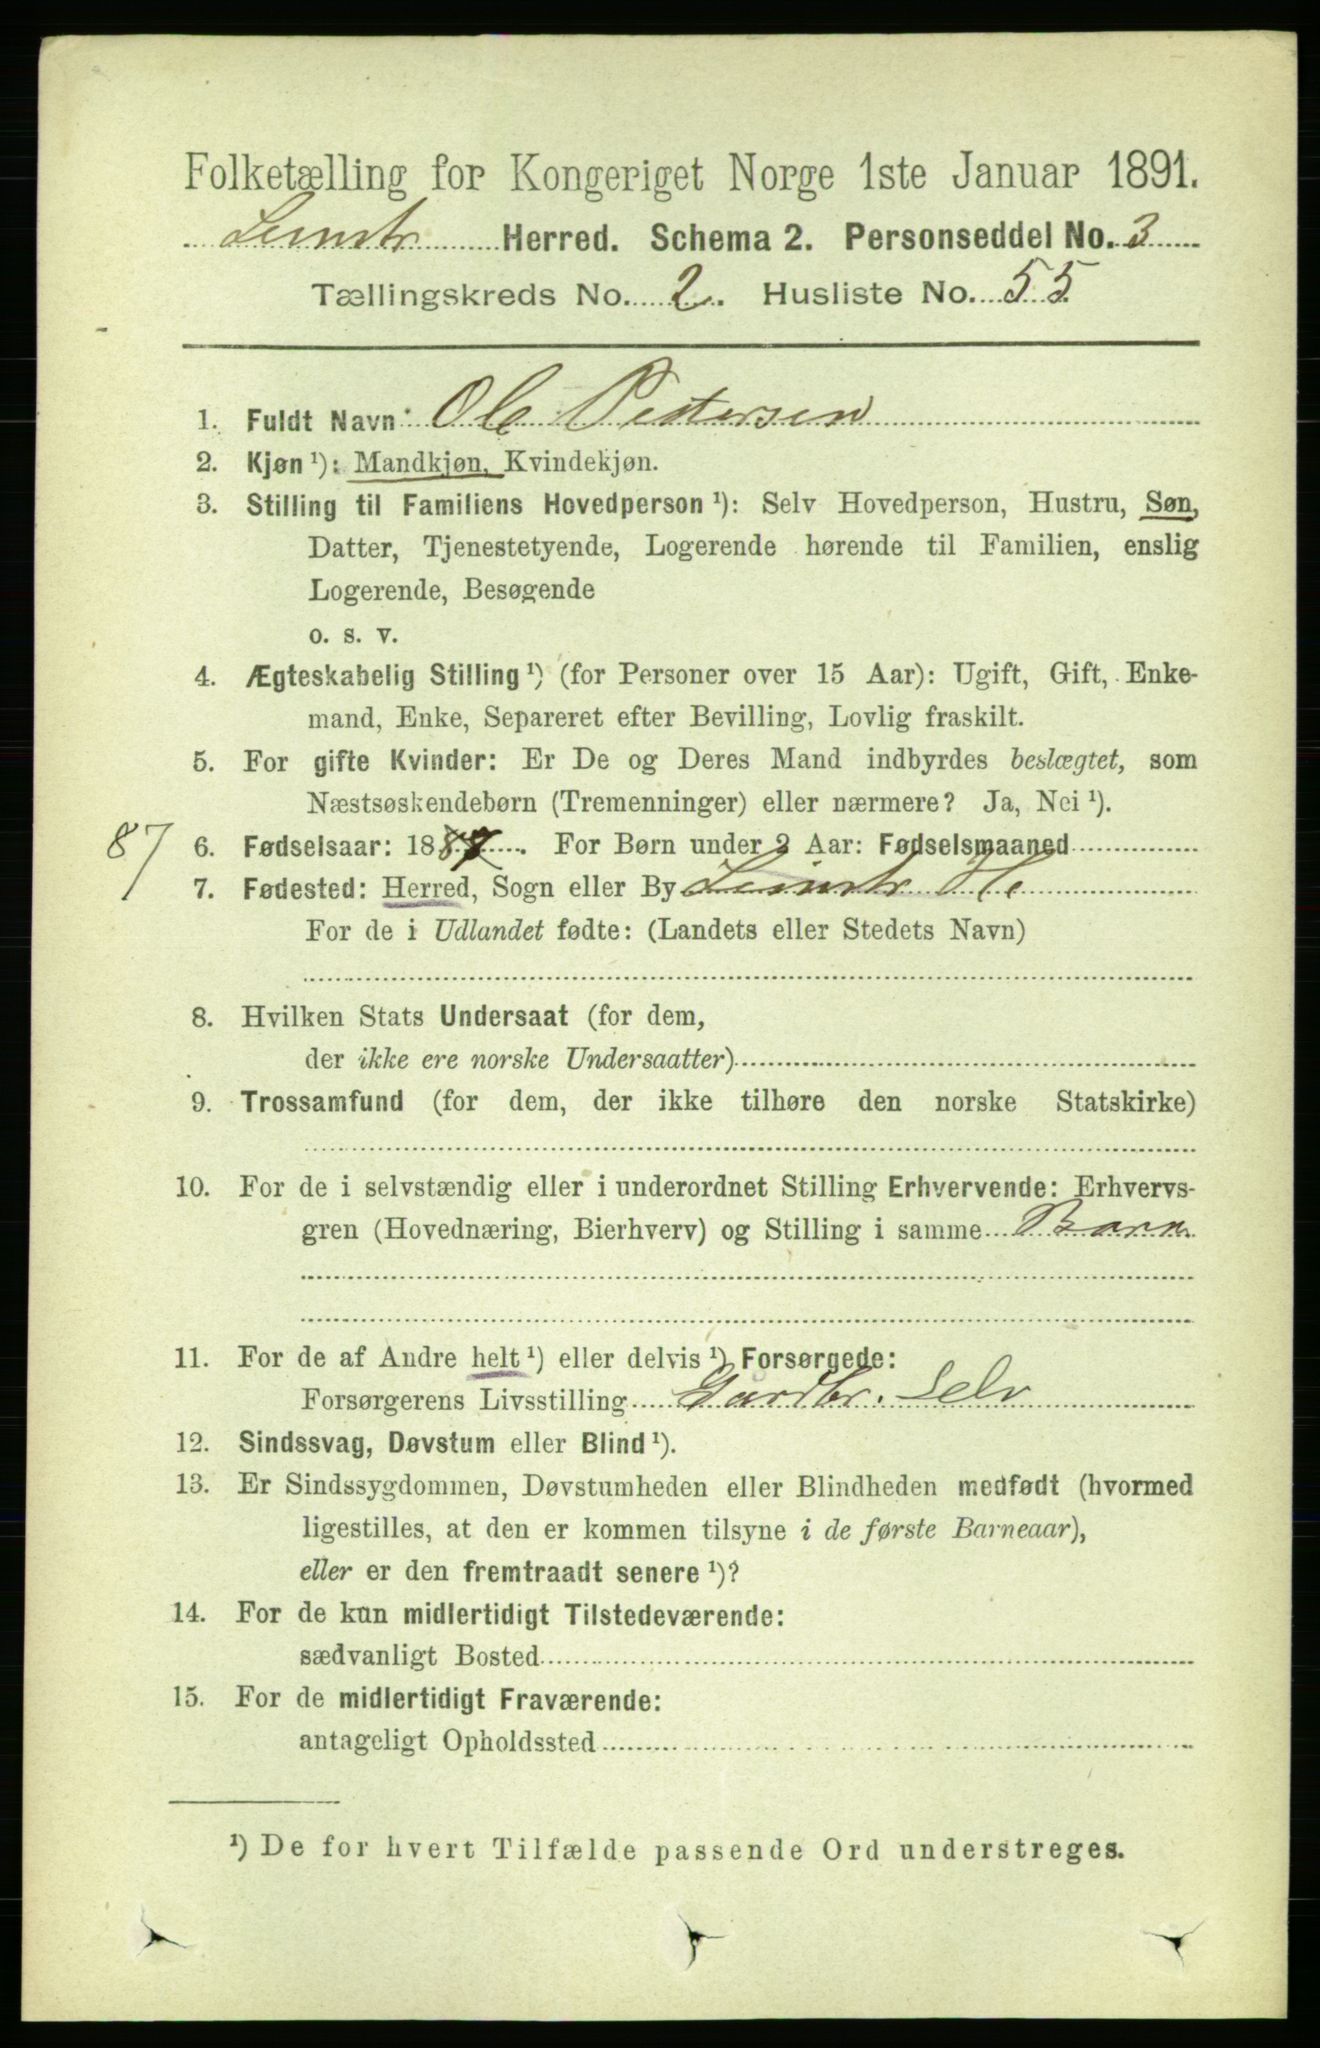 Folketælling for Kongeriget Norge 1ste Januar 1891.
Leinstr. Herred. Schema 2. Personseddel No. 3
Tællingskreds No. 2. Husliste No. 55
1. Fuldt Navn: Ole Pedersen
2. Kjøn ¹): Mandkjøn, Kvindekjøn.
3. Stilling til Familiens Hovedperson ¹): Selv Hovedperson, Hustru, Søn,
Datter, Tjenestetyende, Logerende hørende til Familien, enslig
Logerende, Besøgende
o. s. v.
4. Ægteskabelig Stilling ¹) (for Personer over 15 Aar): Ugift, Gift, Enke-
mand, Enke, Separeret efter Bevilling, Lovlig fraskilt.
5. For gifte Kvinder: Er De og Deres Mand indbyrdes beslægtet, som
Næstsøskendebørn (Tremenninger) eller nærmere? Ja, Nei ¹).
87 6. Fødselsaar: 1887. For Børn under 2 Aar: Fødselsmaaned
7. Fødested: Herred, Sogn eller By Leinstr. H.
For de i Udlandet fødte: (Landets eller Stedets Navn)
8. Hvilken Stats Undersaat (for dem,
der ikke ere norske Undersaatter)
9. Trossamfund (for dem, der ikke tilhøre den norske Statskirke)
10. For de i selvstændig eller i underordnet Stilling Erhvervende: Erhvervs-
gren (Hovednæring, Bierhverv) og Stilling i samme Barn
11. For de af Andre helt ¹) eller delvis ¹) Forsørgede:
Forsørgerens Livsstilling Gardbr. Selv
12. Sindssvag, Døvstum eller Blind ¹).
13. Er Sindssygdommen, Døvstumheden eller Blindheden medfødt (hvormed
ligestilles, at den er kommen tilsyne i de første Barneaar),
eller er den fremtraadt senere ¹)?
14. For de kun midlertidigt Tilstedeværende:
sædvanligt Bosted
15. For de midlertidigt Fraværende:
antageligt Opholdssted
¹) De for hvert Tilfælde passende Ord understreges.